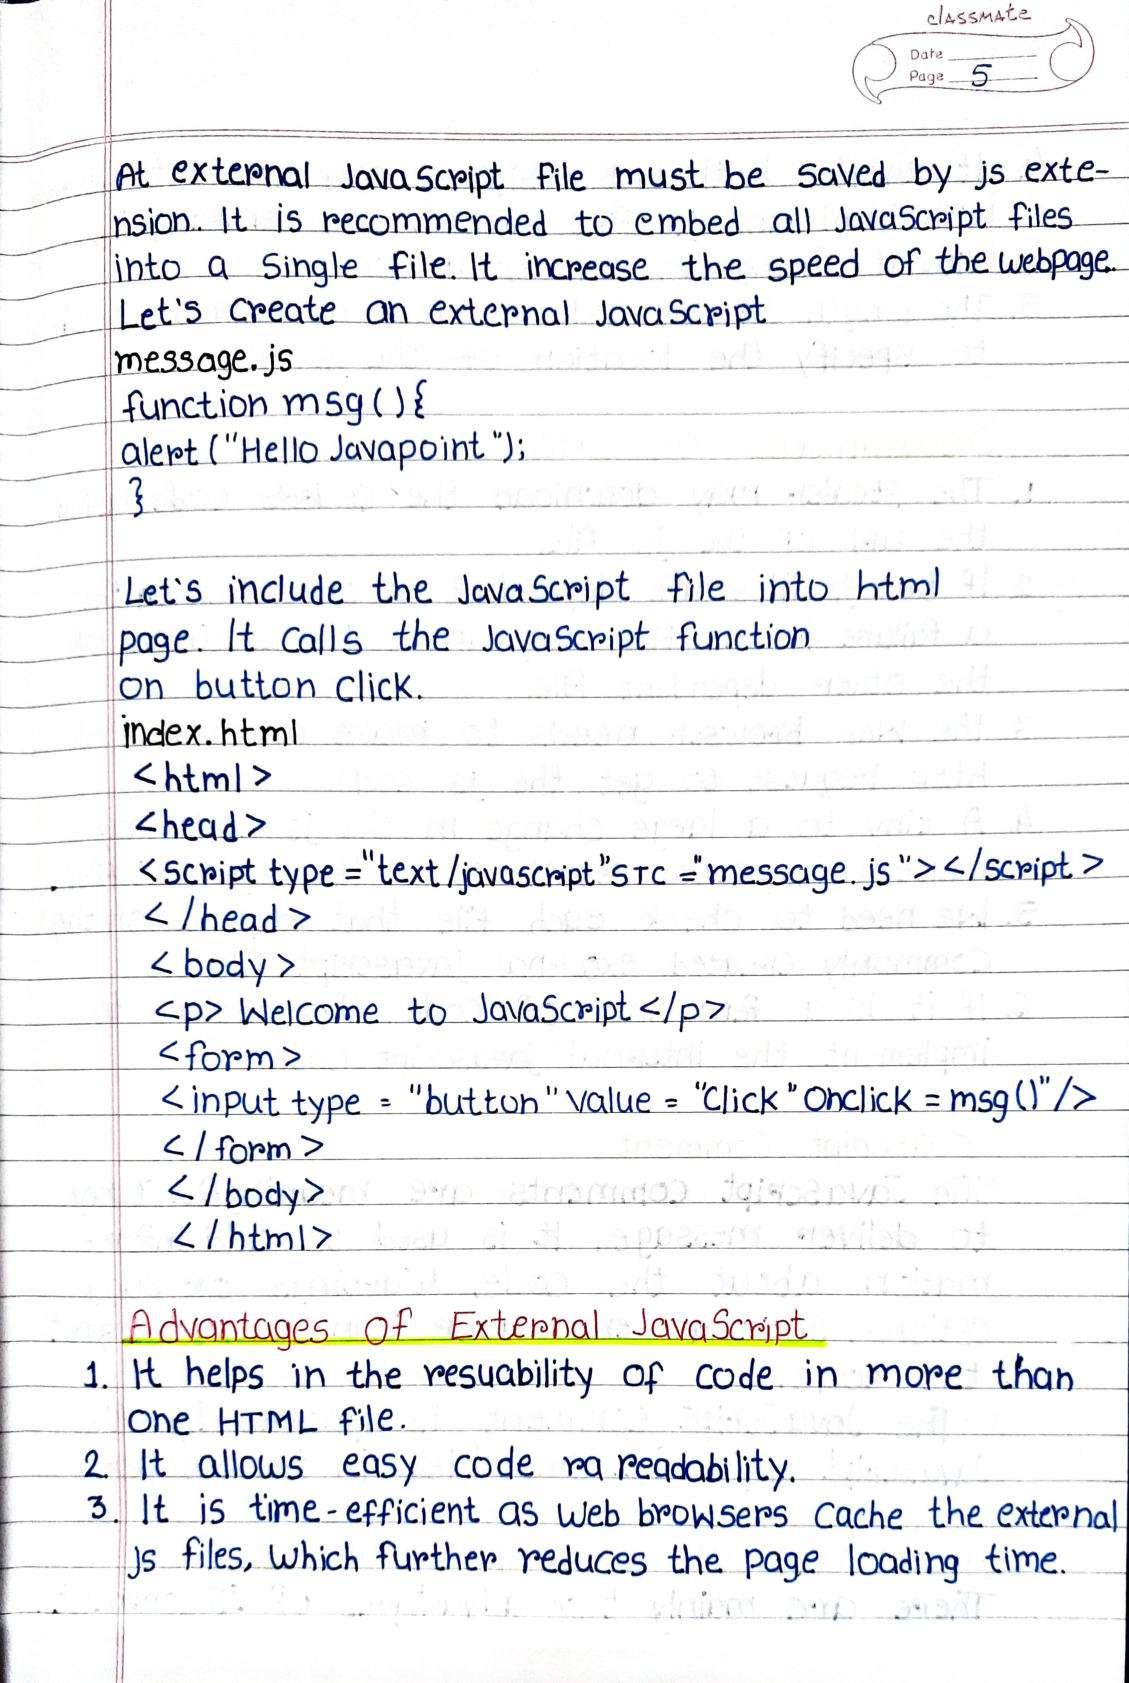 classmate
Date
Page 5
At external JavaScript file must be saved by js exte-
nsion. It is recommended to embed all JavaScript files
into a single file. It increase the speed of the webpage.
Let's create an external JavaScript
message.js
function msg(){
alert("Hello Javapoint");
}
Let's include the JavaScript file into html
page. It calls the JavaScript function
on button click.
index.html
<html>
<head>
<script type="text/javascript"src="message.js"></script>
</head>
<body>
<p> Welcome to JavaScript</p>
<form>
<input type = "button" value = "Click" Onclick = msg()"/>
</form>
</body>
</html>
Advantages of External JavaScript
1. It helps in the resuability of code in more than
one HTML file.
2. It allows easy code ra readability.
3. It is time-efficient as web browsers cache the external
js files, which further reduces the page loading time.